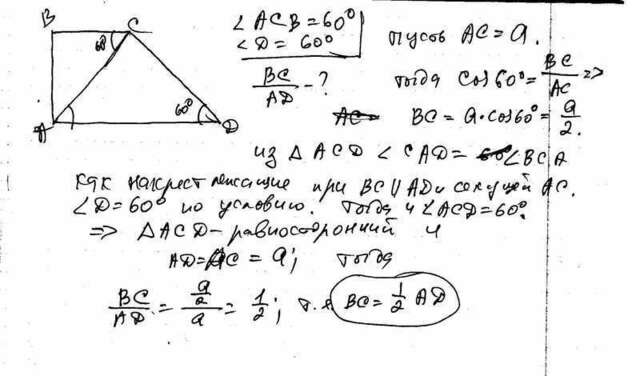 B C
60°
A 60° D
∠ACB = 60°
∠D = 60°
BC/AD - ?
Пусть AC = a.
Тогда cos60° = BC/AC =>
BC = a·cos60° = a/2.
из △ ACD ∠CAD = ∠BCA
как накрест лежащие при BC || AD и секущей AC.
∠D = 60° по условию. Тогда и ∠ACD = 60°.
=> △ACD - равносторонний и
AD = AC = a; тогда
BC/AD = (a/2)/a = 1/2; т.е. BC = 1/2 AD